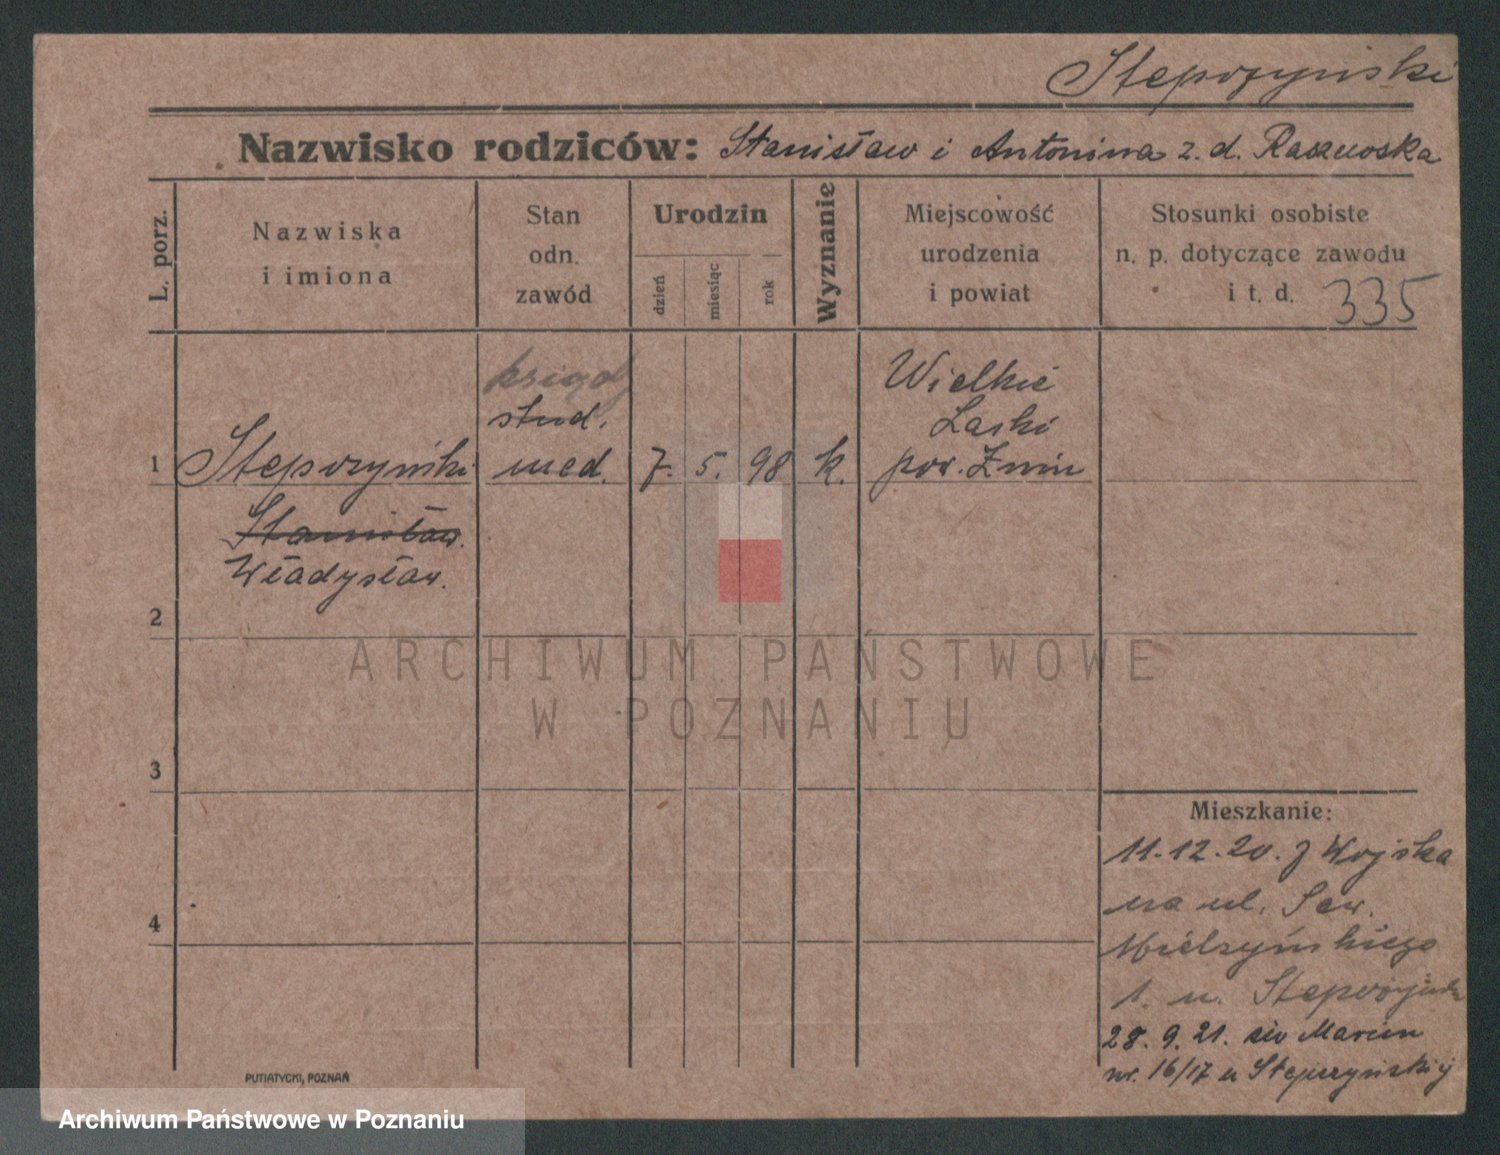 Stepczyński
Nazwisko rodziców: Stanisław i Antonina z. d.
L. porz.
Nazwiska
i imiona
Stan
odn.
zawód
Urodzin
dzień
miesiąc
rok
Wyznanie
Miejscowość
urodzenia
i powiat
Stosunki osobiste
n. p. dotyczące zawodu
i t. d. 335
ksiądz
stud.
med.
1 Stepczyński
7. 5. 98 k.
Wielkie
Laski
pow. Żnin
Stanisław.
Władysław.
2
ARCHIWUM PAŃSTWOWE
W POZNANIU
3
4
Mieszkanie:
11.12.20. z Wojska
na ul. Sew.
Mielżyńskiego
1. u.
28. 9. 21. św Marcin
nr. 16/17 u Stepczyńskiej
PUTIATYCKI, POZNAŃ
Archiwum Państwowe w Poznaniu